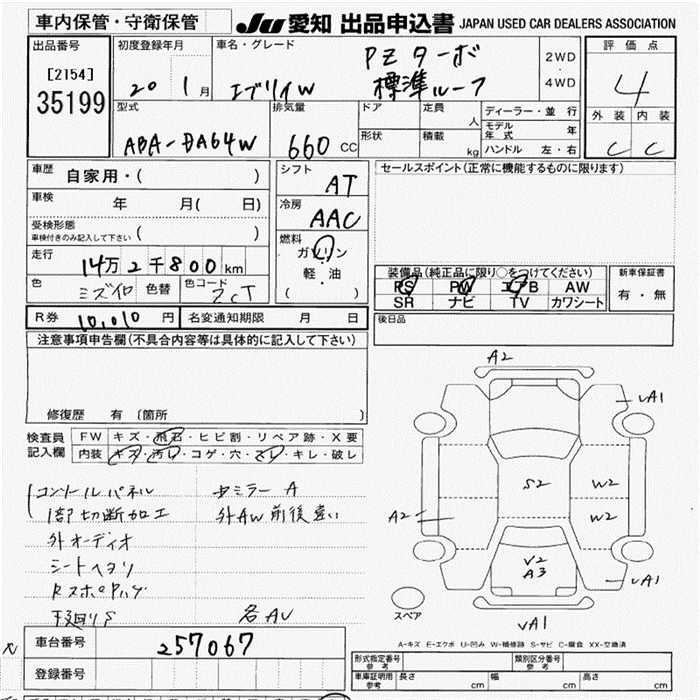 車内保管・守衛保管
JU 愛知 出品申込書 JAPAN USED CAR DEALERS ASSOCIATION
出品番号
[2154]
35199
初度登録年月
20 1 月
車名・グレード
エブリイW
PZターボ
標準ルーフ
2WD
4WD
評価点
4
外装 内装
C C
型式
ABA-DA64W
排気量
660 CC
ドア
形状
定員
人
積載
kg
ディーラー・並行
モデル年式 年
ハンドル 左・右
車歴 自家用・( )
車検 年 月( 日)
受検形態
車検付きのみ記入して下さい ( )
走行
14万2千800km
色 ミズイロ 色替 色コード ZCT
シフト
AT
冷房
AAC
燃料
ガソリン
軽・油
( )
セールスポイント(正常に機能するものに限ります)
装備品(純正品に限り○をつけてください)
PS PW エアB AW
SR ナビ TV カワシート
新車保証書
有・無
R券 10,010 円 名変通知期限 月 日
後日品
注意事項申告欄(不具合内容等は具体的に記入して下さい)
修復歴 有 〔箇所 〕
検査員
記入欄
FW キズ・飛石・ヒビ割・リペア跡・X要
内装 キズ・汚レ・コゲ・穴・スレ・キレ・破レ
コンソールパネル
1部切断加工
外オーディオ
シートヘタリ
中ミラーA
外AW前後違い
各AU
A2
UA1
S2
W2
W2
A2
V2
A3
UA1
UA1
スペア
A-キズ E-エクボ U-凹み W-補修跡 S-サビ C-腐食 XX-交換済
車台番号 257067
登録番号
形式指定番号
参考
類別区分番号
参考
車庫証明用
参考
長さ cm 幅 cm 高さ cm